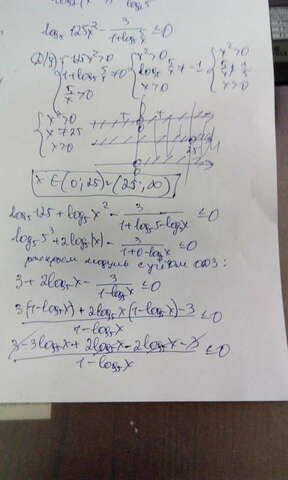 log₅125x² - 3/(1+log₅ 5/x) ≤ 0
{ 125x²>0 { x²>0 { x²>0
{ 1+log₅ 5/x ≠ 0 { log₅ 5/x ≠ -1 { 5/x ≠ 1/5
{ 5/x > 0 { x>0
{ x²>0
{ x ≠ 25
{ x>0
25
x ∈ (0; 25) ∪ (25; ∞)
log₅125 + log₅x² - 3/(1+log₅5-log₅x) ≤ 0
log₅5³ + 2log₅|x| - 3/(1+0-log₅x) ≤ 0
раскроем модуль с учётом ОДЗ:
3 + 2log₅x - 3/(1-log₅x) ≤ 0
(3(1-log₅x) + 2log₅x(1-log₅x) - 3)/(1-log₅x) ≤ 0
(3 - 3log₅x + 2log₅x - 2log₅x - 3)/(1-log₅x) ≤ 0